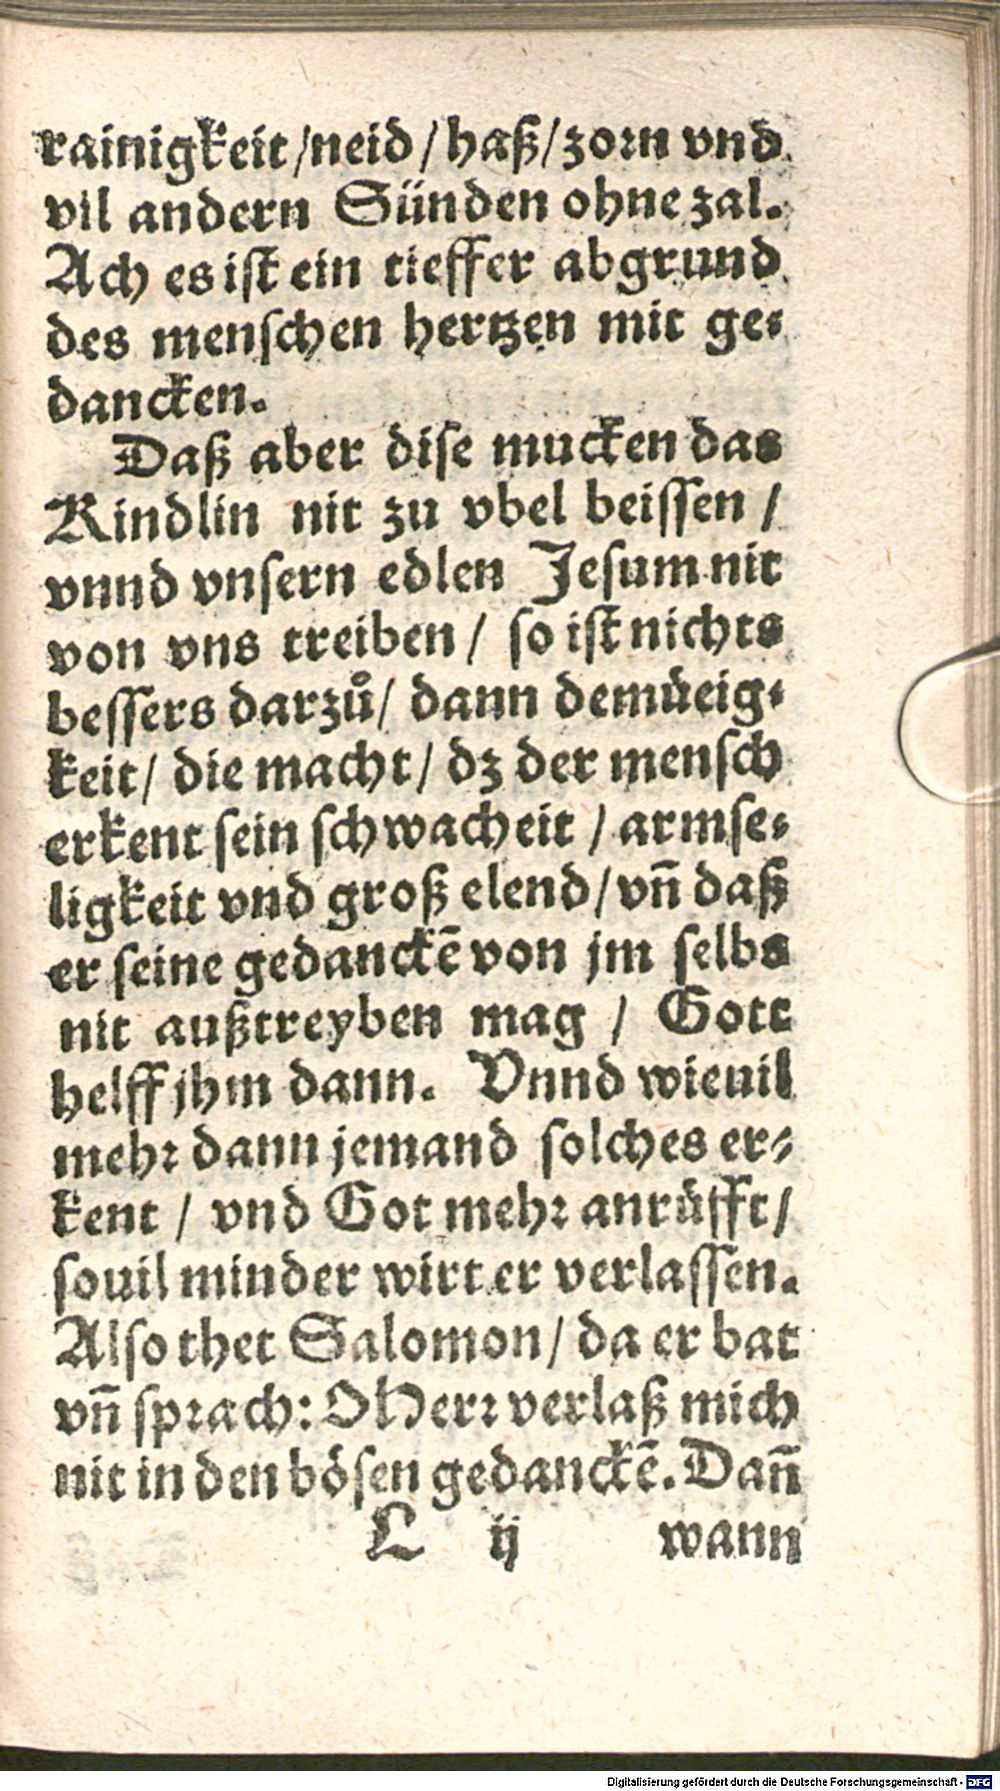 rainigkeit / neid / haß / zorn vnd
vil andern Sünden ohne zal.
Ach es ist ein tieffer abgrund
des menschen hertzen mit ge⸗
dancken.
Daß aber dise mucken das
Kindlin nit zu vbel beissen /
vnnd vnsern edlen Jesum nit
von vns treiben / so ist nichts
bessers darzů / dann demüeig⸗
keit / die macht / dz der mensch
erkent sein schwacheit / armse⸗
ligkeit vnd groß elend / vñ daß
er seine gedanckē von jm selbs
nit außtreyben mag / Gott
helff jhm dann. Vnnd wieuil
mehr dann jemand solches er⸗
kent / vnd Got mehr anrüfft /
souil minder wirt er verlassen.
Also thet Salomon / da er bat
vñ sprach: O Herr verlaß mich
nit in den bösen gedanckē. Dañ
L ij wann
Digitalisierung gefördert durch die Deutsche Forschungsgemeinschaft - DFG